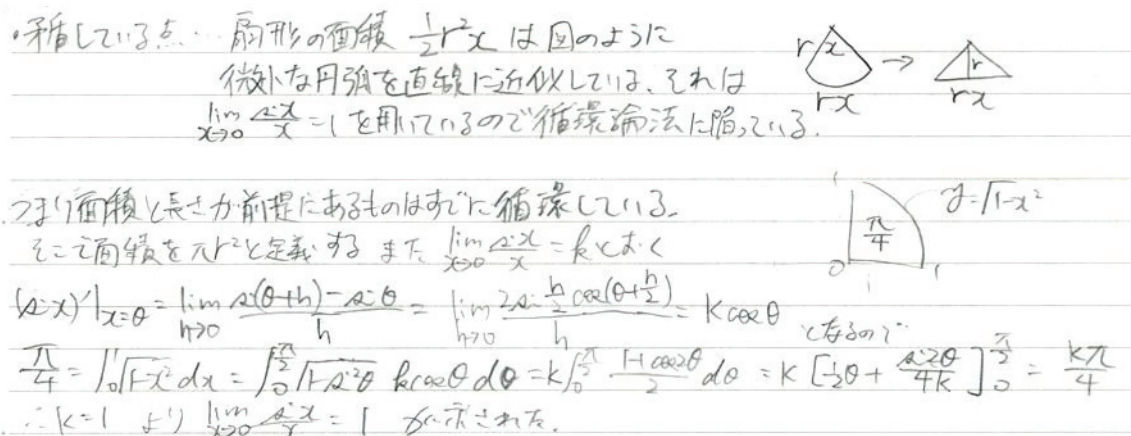 ・矛盾している点… 扇形の面積 1/2 r²x は図のように
微小な円弧を直線に近似している、それは
lim x→0 sin x/x = 1 を用いているので循環論法に陥っている.
r x rx → r rx
つまり面積と長さが前提にあるものはすでに循環している.
そこで面積をπr²と定義する また lim x→0 sin x/x = k とおく
1 π/4 y=√1-x² 0 1 1
(sin x)'|x=θ = lim h→0 sin(θ+h)-sinθ/h = lim h→0 2sin h/2 cos(θ+h/2)/h = k cosθ となるので
π/4 = ∫₀¹√1-x² dx = ∫₀^π/2 √1-sin²θ k cosθ dθ = k∫₀^π/2 1+cos2θ/2 dθ = k[1/2 θ + sin2θ/4k]₀^π/2 = kπ/4
∴ k=1 より lim x→0 sin x/x = 1 が示された.